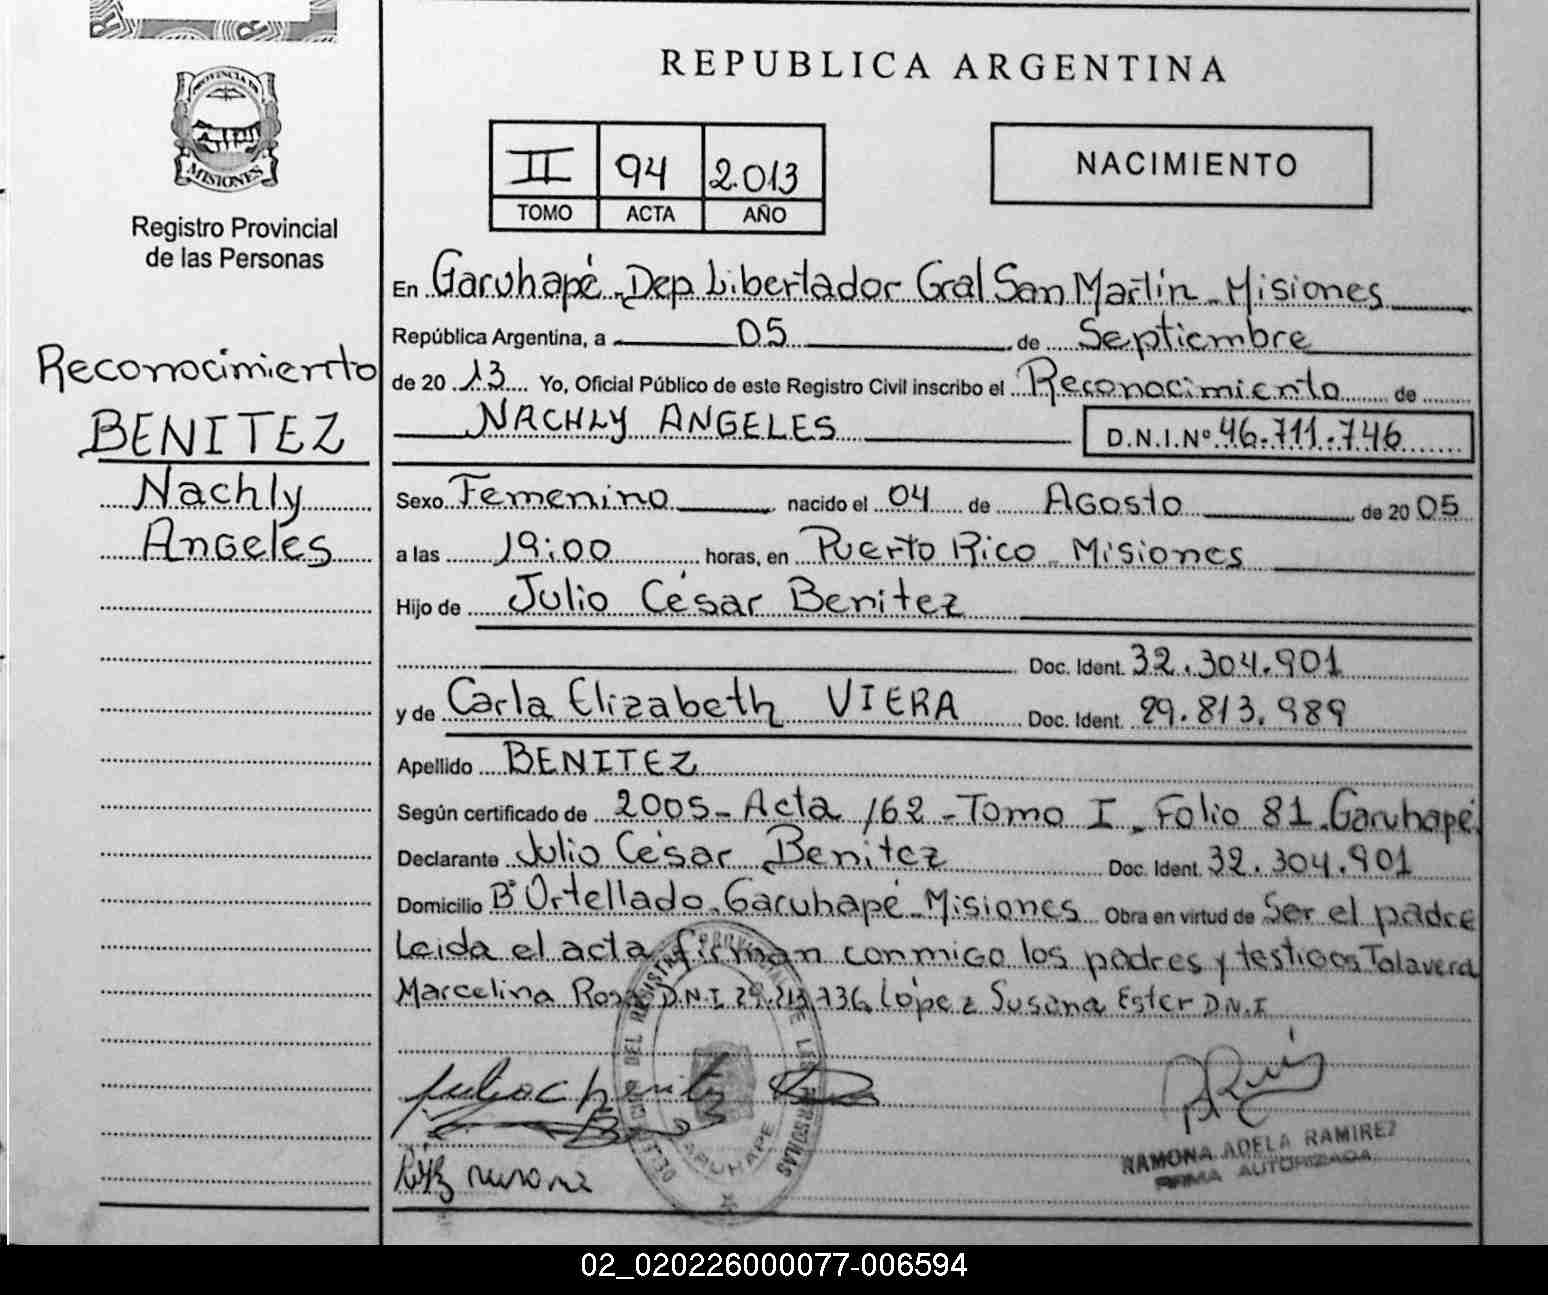 PROVINCIA DE
MISIONES
Registro Provincial
de las Personas
Reconocimiento
BENITEZ
Nachly
Angeles
REPUBLICA ARGENTINA
II 94 2.013
TOMO ACTA AÑO
NACIMIENTO
En Garuhapé - Dep Libertador Gral San Martín - Misiones
República Argentina, a 05 de Septiembre
de 20 13 Yo, Oficial Público de este Registro Civil inscribo el Reconocimiento de
NACHLY ANGELES D.N.I.Nº 46.711.746
Sexo Femenino nacido el 04 de Agosto de 20 05
a las 19:00 horas, en Puerto Rico - Misiones
Hijo de Julio César Benitez
Doc. Ident. 32.304.901
y de Carla Elizabeth VIERA Doc. Ident. 29.813.989
Apellido BENITEZ
Según certificado de 2005 - Acta 162 - Tomo I - Folio 81 - Garuhapé
Declarante Julio César Benitez Doc. Ident. 32.304.901
Domicilio Bº Ortellado - Garuhapé - Misiones Obra en virtud de Ser el padre
Leida el acta firman conmigo los padres y testigos Talavera
Marcelina Rosa D.N.I López Susana Ester D.N.I
GARUHAPE
RAMONA ADELA RAMIREZ
FIRMA AUTORIZADA
02_020226000077-006594